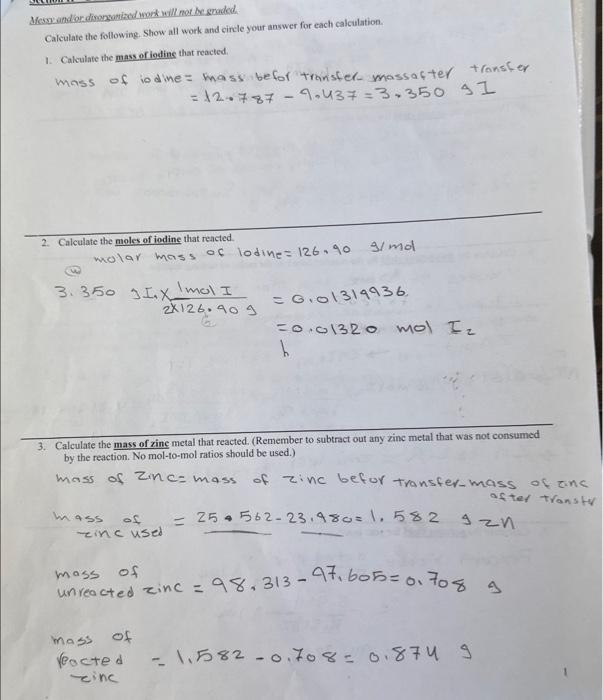 Messy and/or disorganized work will not be graded.
Calculate the following. Show all work and circle your answer for each calculation.
1. Calculate the mass of iodine that reacted.
mass of iodine = mass befor transfer - massafter transfer
= 12.787 - 9.437 = 3.350 g I
2. Calculate the moles of iodine that reacted.
molar mass of Iodine = 126.90 g/mol
3.350 g I₂ x 1mol I / 2x126.90 g = 0.01319936
= 0.01320 mol I₂
3. Calculate the mass of zinc metal that reacted. (Remember to subtract out any zinc metal that was not consumed
by the reaction. No mol-to-mol ratios should be used.)
mass of Zinc = mass of zinc befor transfer - mass of zinc
after transfer
mass of zinc used = 25.562 - 23.980 = 1.582 g zn
mass of
unreacted zinc = 98.313 - 97.605 = 0.708 g
mass of
reacted zinc = 1.582 - 0.708 = 0.874 g
1